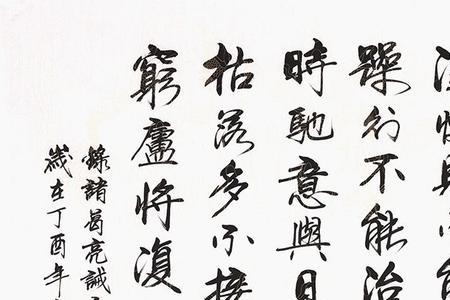 躁則不能治
時馳意與日
枯落多不接
窮廬將復
錄諸葛亮誡
歲在丁酉年